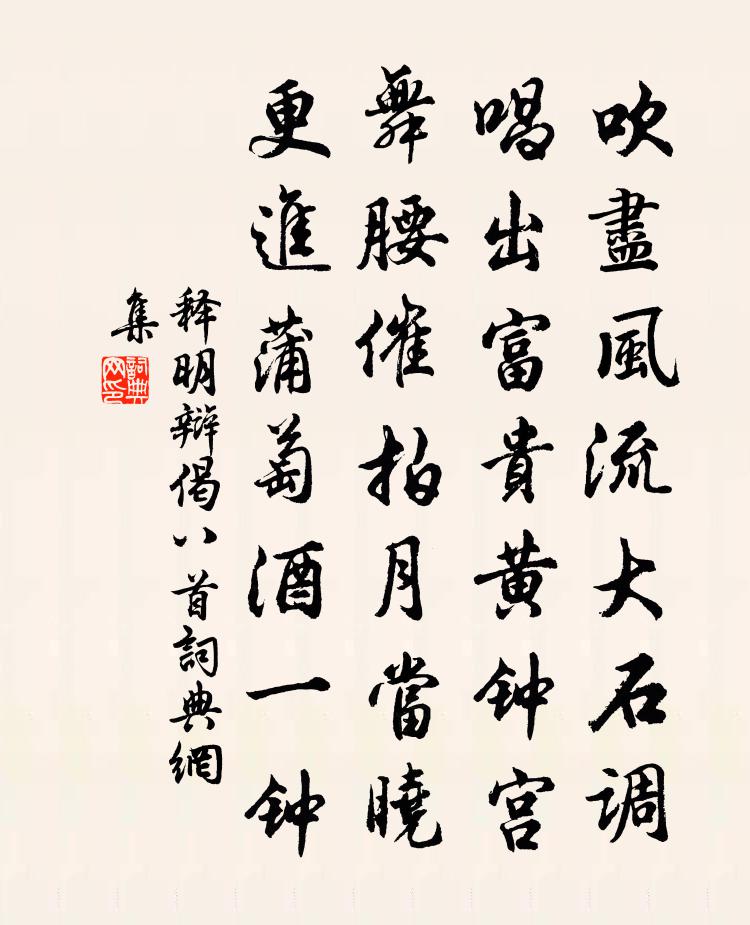 吹盡風流大石調
唱出富貴黃钟宫
舞腰催拍月當曉
更進蒲萄酒一钟
释明辯偈八首詞典網
集
詞典網印